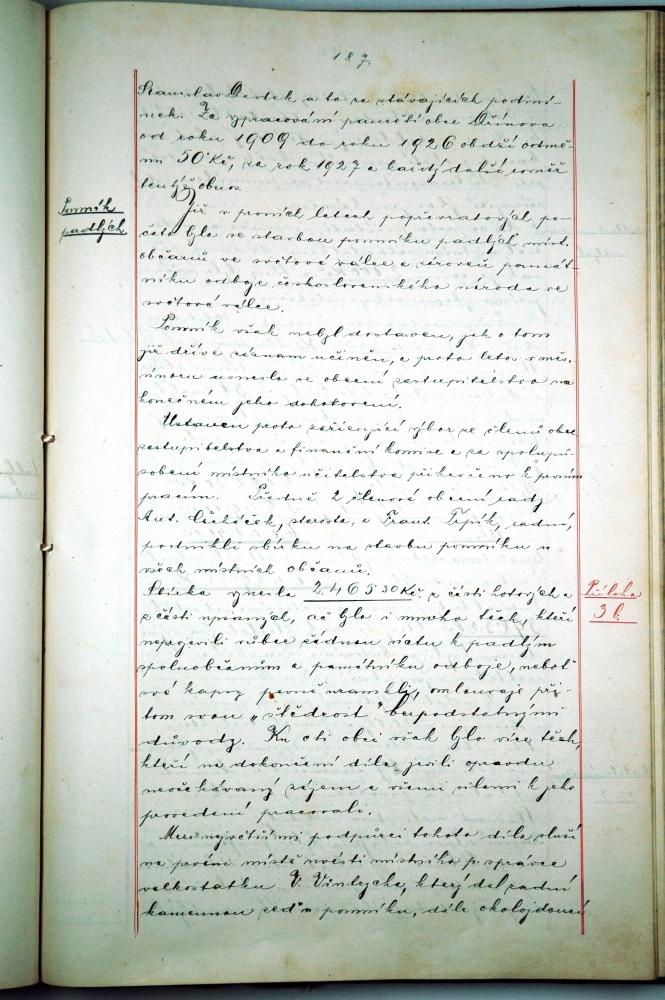 187.
Stanislav Dedek a to za stávajících podmí-
nek. Za vypracování paměti obce Dřínova
od roku 1909 do roku 1926 obdrží odmě-
nu 50 Kč, za rok 1927 a každý další rovněž
tentýž obnos.
Pomník
padlých
Již v prvních letech popřevratových po-
čato bylo se stavbou pomníku padlých míst.
občanů ve světové válce a zároveň památ-
níku odboje československého národa ve
světové válce.
Pomník však nebyl dostaven, jak o tom
již dříve záznam učiněn, a proto letos v měs.
únoru usneslo se obecní zastupitelstvo na
konečném jeho dohotovení.
Ustaven proto zařizující výbor ze členů obec.
zastupitelstva a finanční komise a za spolupů-
sobení místního učitelstva přikročeno k prvním
pracím. Předně 2 členové obecní rady
Ant. starosta, a Frant. Trpík, radní,
podnikli sbírku na stavbu pomníku u
všech místních občanů.
Sbírka vynesla 2.465·30 Kč z části hotových a
z části upsaných, ač bylo i mnoho těch, kteří
neprojevili vůbec žádnou úctu k padlým
spoluobčanům a památníku odboje, neboť
své kapsy pevně zamkli, omlouvaje při-
tom svou „štědrost" bezpodstatnými
důvody. Ku cti obci však bylo více těch,
kteří na dokončení díla jevili opravdu
neočekávaný zájem a všemi silami k jeho
provedení pracovali.
Příloha
3 b.
Mezi největšími podpůrci tohoto díla sluší
na prvém místě uvésti místního p. správce
velkostatku V. který dal zadní
kamennou zeď u pomníku, dále okolojdoucí